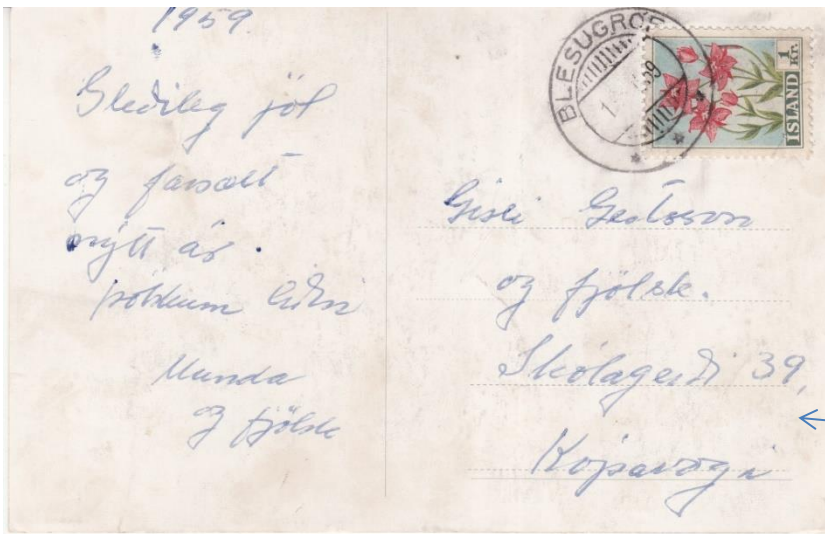 1959.
Gleðileg jól
og farsælt
nýtt ár.
þökkum liðin
Munda
og fjölsk
BLESUGRÓF
1. 59
1 Kr.
ÍSLAND
Gísli Gestsson
og fjölsk.
Skólagerði 39,
Kópavogi